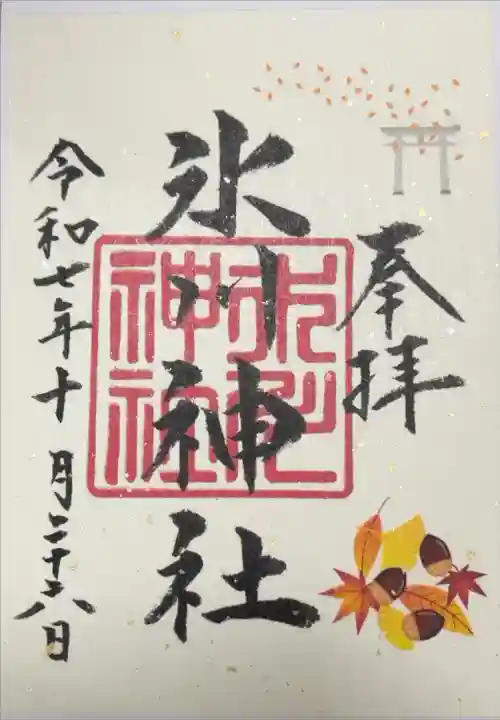 奉拝
氷川神社
氷川神社
令和七年十月二十八日